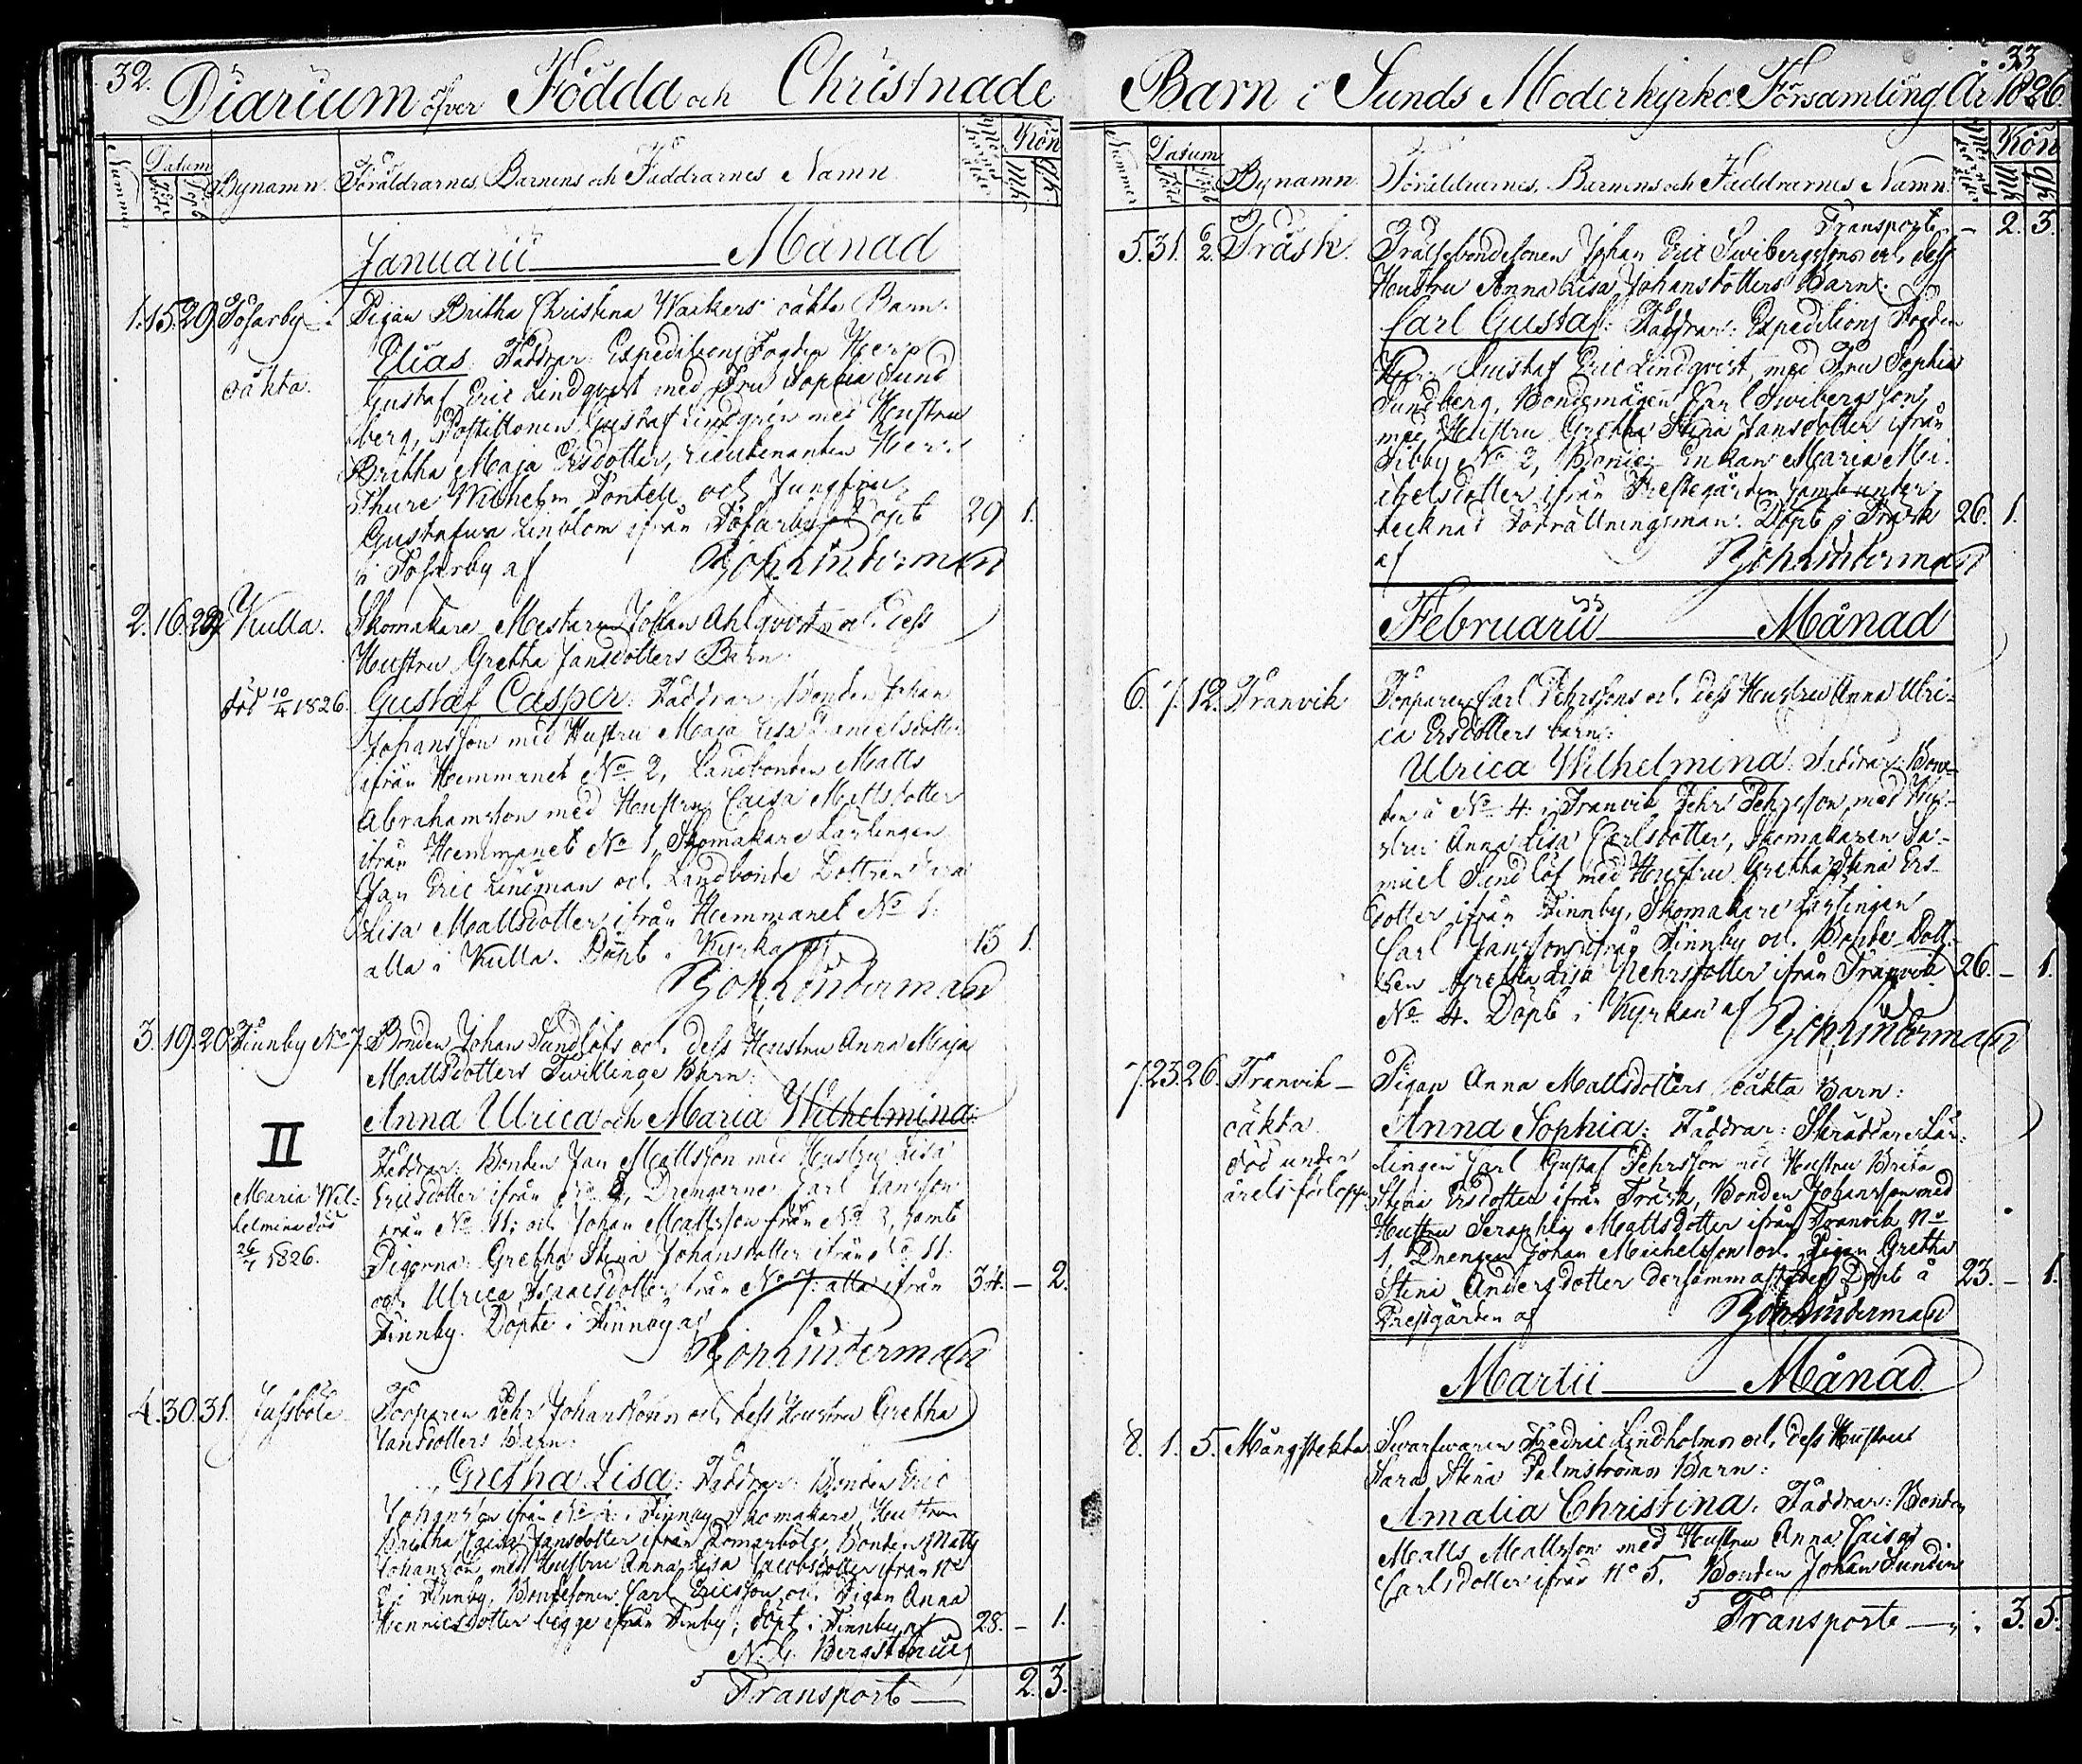 32.
Diarium öfver Födda och Christnade
Nummer
Datum
Född
Döpt
Bynamn.
Föräldrarnes, Barnens och Faddrarnes Namn
Kön
Mk.
Qk.
Januarii Månad
1. 15. 29. Tosarby
oäkta.
Pigan Britha Christina Wackers oäkta Barn.
Elias. Faddrar: Expeditions Fogden Herr
Gustaf Eric Lindqvist med Fru Sophia Sund
berg, Postillonen Gustaf Lindgrén med Hustru
Britha Maja Ersdotter, Lieutenanten Herr
Thure Wilhelm Pontell och Jungfru
Gustafva Linblom ifrån Tosarby. Döpt 29 1.
i Tosarby af Joh Linderman
2. 16. 29 Kulla.
död 10/4 1826.
Skomakare Mestaren Johan Ahlqvists och dess
Hustru Gretha Jansdotters Barn
Gustaf Casper: Faddrar: Bonden Johan
Johansson med Hustru Maja Lisa Danielsdotter
ifrån Hemmanet No 2, Landbonden Matts
Abrahamsson med Hustru Caisa Mattsdotter
ifrån Hemmanet No 1, Skomakare Lärlingen
Jan Eric Lindman och Landbonde Dottren Sara
Lisa Mattsdotter ifrån Hemmanet No 1.
alla i Kulla. Döpt i Kyrkan af 13 1.
Joh Linderman
3. 19. 20. Finnby No 7.
II
Maria Wil-
helmina död
26/7 1826.
Bonden Johan Sundlöfs och dess Hustru Anna Maja
Mattsdotters Twillinge Barn:
Anna Ulrica och Maria Wilhelmina:
Faddrar: Bonden Jan Mattsson med Hustru Lisa
Ericsdotter ifrån No 8, Drengarne: Carl Jansson
från No 11: och Johan Mattsson från No 3, samt
Pigorna: Gretha Stina Johansdotter ifrån No 11:
och Ulrica Isaacsdotter från No 7: alla ifrån 34. – 2.
Finnby. Döpte i Finnby af
Joh Linderman
4. 30. 31. Jussböle
Torparen Pehr Johanssons och dess Hustru Gretha
Jansdotters Barn:
Gretha Lisa: Faddrar: Bonden Eric
Johansson ifrån No 4: i Finnby, Skomakare Hustrun
Britha Caisa Jansdotter ifrån Domarböle, Bonden Matts
Johansson med Hustru Anna Lisa Jacobsdotter ifrån No
2 i Finnby, Bondesonen Carl Ericsson och Pigan Anna
Henricsdotter begge ifrån Finby; döpt i Finnby af 28. – 1.
N. G. Bergstrand
Transport — 2. 3.
33
Barn i Sunds Moderkyrko Församling År 1826.
Nummer
Datum
Född
Döpt
Bynamn.
Föräldrarnes, Barnens och Faddrarnes Namn.
Kön
Mk
Qk
Transport – 2. 3.
5. 31. 6/2. Träsk.
Frälsebondesonen Johan Eric Swibergssons och dess
Hustru Anna Lisa Johansdotters Barn:
Carl Gustaf: Faddrar: Expeditions Fogden
Herr Gustaf Eric Lindqvist, med Fru Sophia
Sundberg, Bondemågen Carl Swibergsson
med Hustru Gretha Stina Jansdotter ifrån
Tibby No 2, Bonde Enkan Maria Mi-
chelsdotter ifrån Prestegården samt under-
tecknad Förrättningsman. Döpt i Träsk 26. 1.
af Joh Linderman
Februarii Månad
6. 7. 12. Tranvik
Torparen Carl Pehrssons och dess Hustru Anna Ulri-
ca Ersdotters barn:
Ulrica Wilhelmina: Faddrar: Bon-
den å No 4: i Tranvik Pehr Pehrsson med Hu-
stru Anna Lisa Carlsdotter, Skomakaren Sa-
muel Sundlöf med Hustru Gretha Stina Ers-
dotter ifrån Finnby, Skomakare Lärlingen
Carl Jansson ifrån Finnby och Bonde Dott-
ren Gretha Lisa Pehrsdotter ifrån Tranvik 26. – 1.
No 4. Döpt i Kyrkan af Joh Linderman
7. 23. 26. Tranvik –
oäkta.
död under
årets förlopp
Pigan Anna Mattsdotters oäkta Barn:
Anna Sophia: Faddrar: Skräddare Lär-
lingen Carl Gustaf Pehrsson med Hustru Brita
Stina Ersdotter ifrån Träsk, Bonden Johansson med
Hustru Seraphia Mattsdotter ifrån Tranvik No
1, Drengen Johan Michelsson och Pigan Gretha
Stina Andersdotter dersammastädes Döpt å 23. – 1.
Prestgården af Joh Linderman
Martii Månad
8. 1. 5. Mångstekta
Swarfwaren Fredric Lindholms och dess Hustrus
Sara Stina Palmströms Barn:
Amalia Christina. Faddrar: Bonden
Matts Mattsson med Hustru Anna Caisa
Carlsdotter ifrån No 5. Bonden Johan Sundin
Transport — 3. 5.